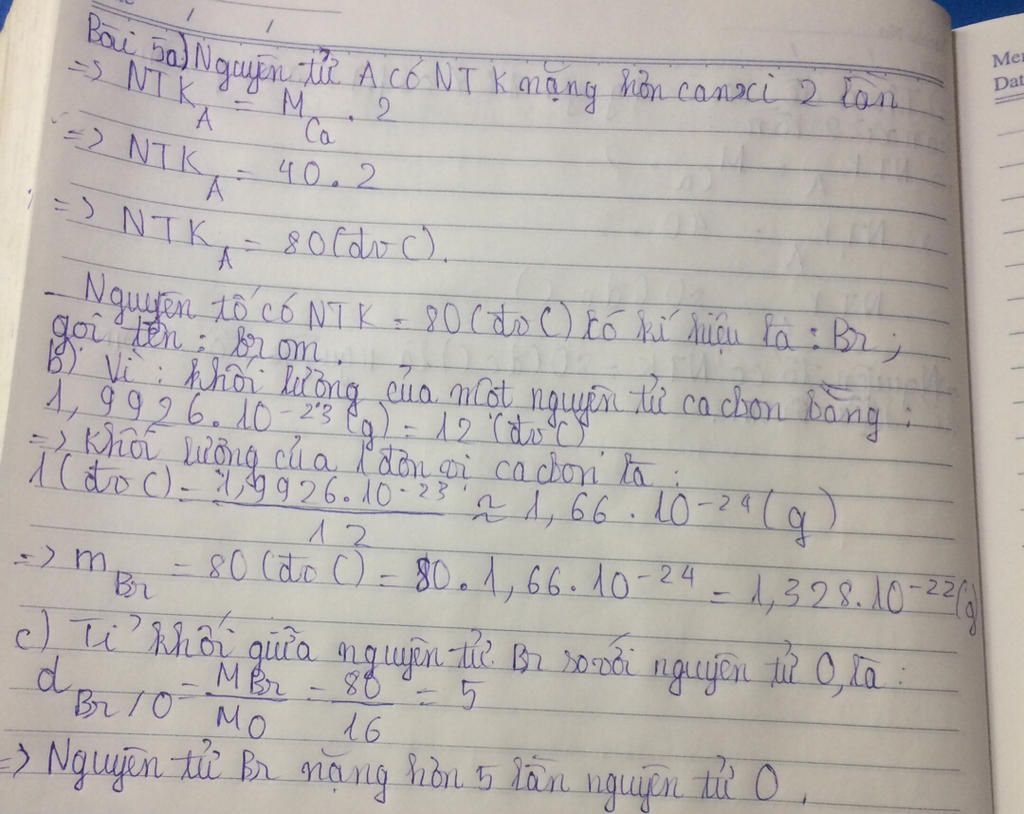 Bài 5a) Nguyên tử A có NTK nặng hơn canxi 2 lần
=> NTK_A = M_Ca . 2
=> NTK_A = 40 . 2
=> NTK_A = 80 (đvC).
- Nguyên tố có NTK = 80 (đvC) có kí hiệu là : Br ;
gọi tên : Brom.
b) Vì : khối lượng của một nguyên tử cacbon bằng :
1,9926.10^-23 (g) = 12 (đvC)
=> Khối lượng của 1 đơn vị cacbon là :
1 (đvC) = 1,9926.10^-23 / 12 ≈ 1,66 . 10^-24 (g)
=> m_Br = 80 (đvC) = 80 . 1,66 . 10^-24 = 1,328.10^-22 (g)
c) Tỉ khối giữa nguyên tử Br so với nguyên tử O, là :
d_Br/O = MBr / MO = 80 / 16 = 5
=> Nguyên tử Br nặng hơn 5 lần nguyên tử O.
Me
Dat